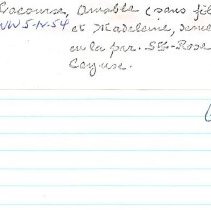 Lacourse, Amable (sans fil
NW 5-IV-54 et Madeleine, seme
en la par. Ste-Rose
Cayuse.